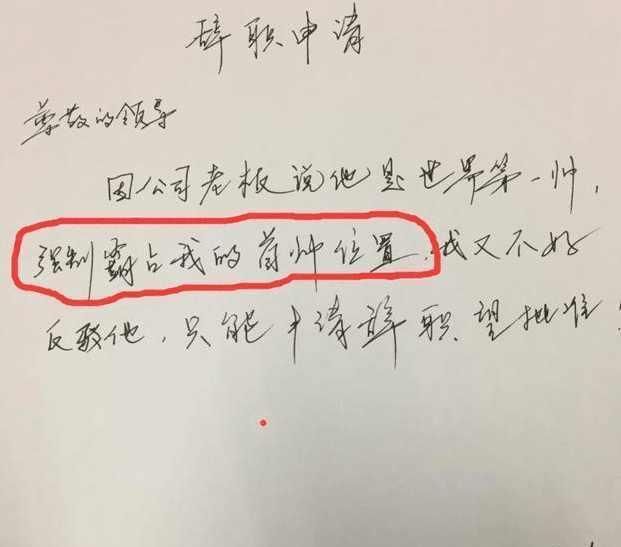 辞职申请
尊敬的领导
因公司老板说他是世界第一帅,
强制霸占我的首帅位置,我又不好
反驳他,只能申请辞职望批准!